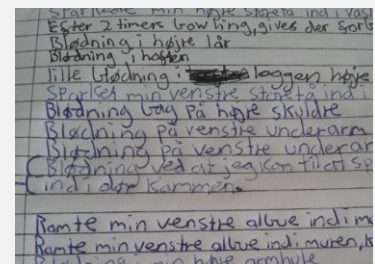 Sparkede min højre storetå ind i væs
Efter 2 timers bowling, gives der for
Blødning i højre lår
Blødning i hoften
lille blødning i læggen højre
Sparker min venstre storetå ind i
Blødning bag på højre skuldre
Blødning på venstre underarm
Blødning på venstre underar
Blødning ved at jeg kon til at sp
ind i dør kammen.
Ramte min venstre albue ind i m
Ramte min venstre albue ind i muren, k
Blødning min højre armhule